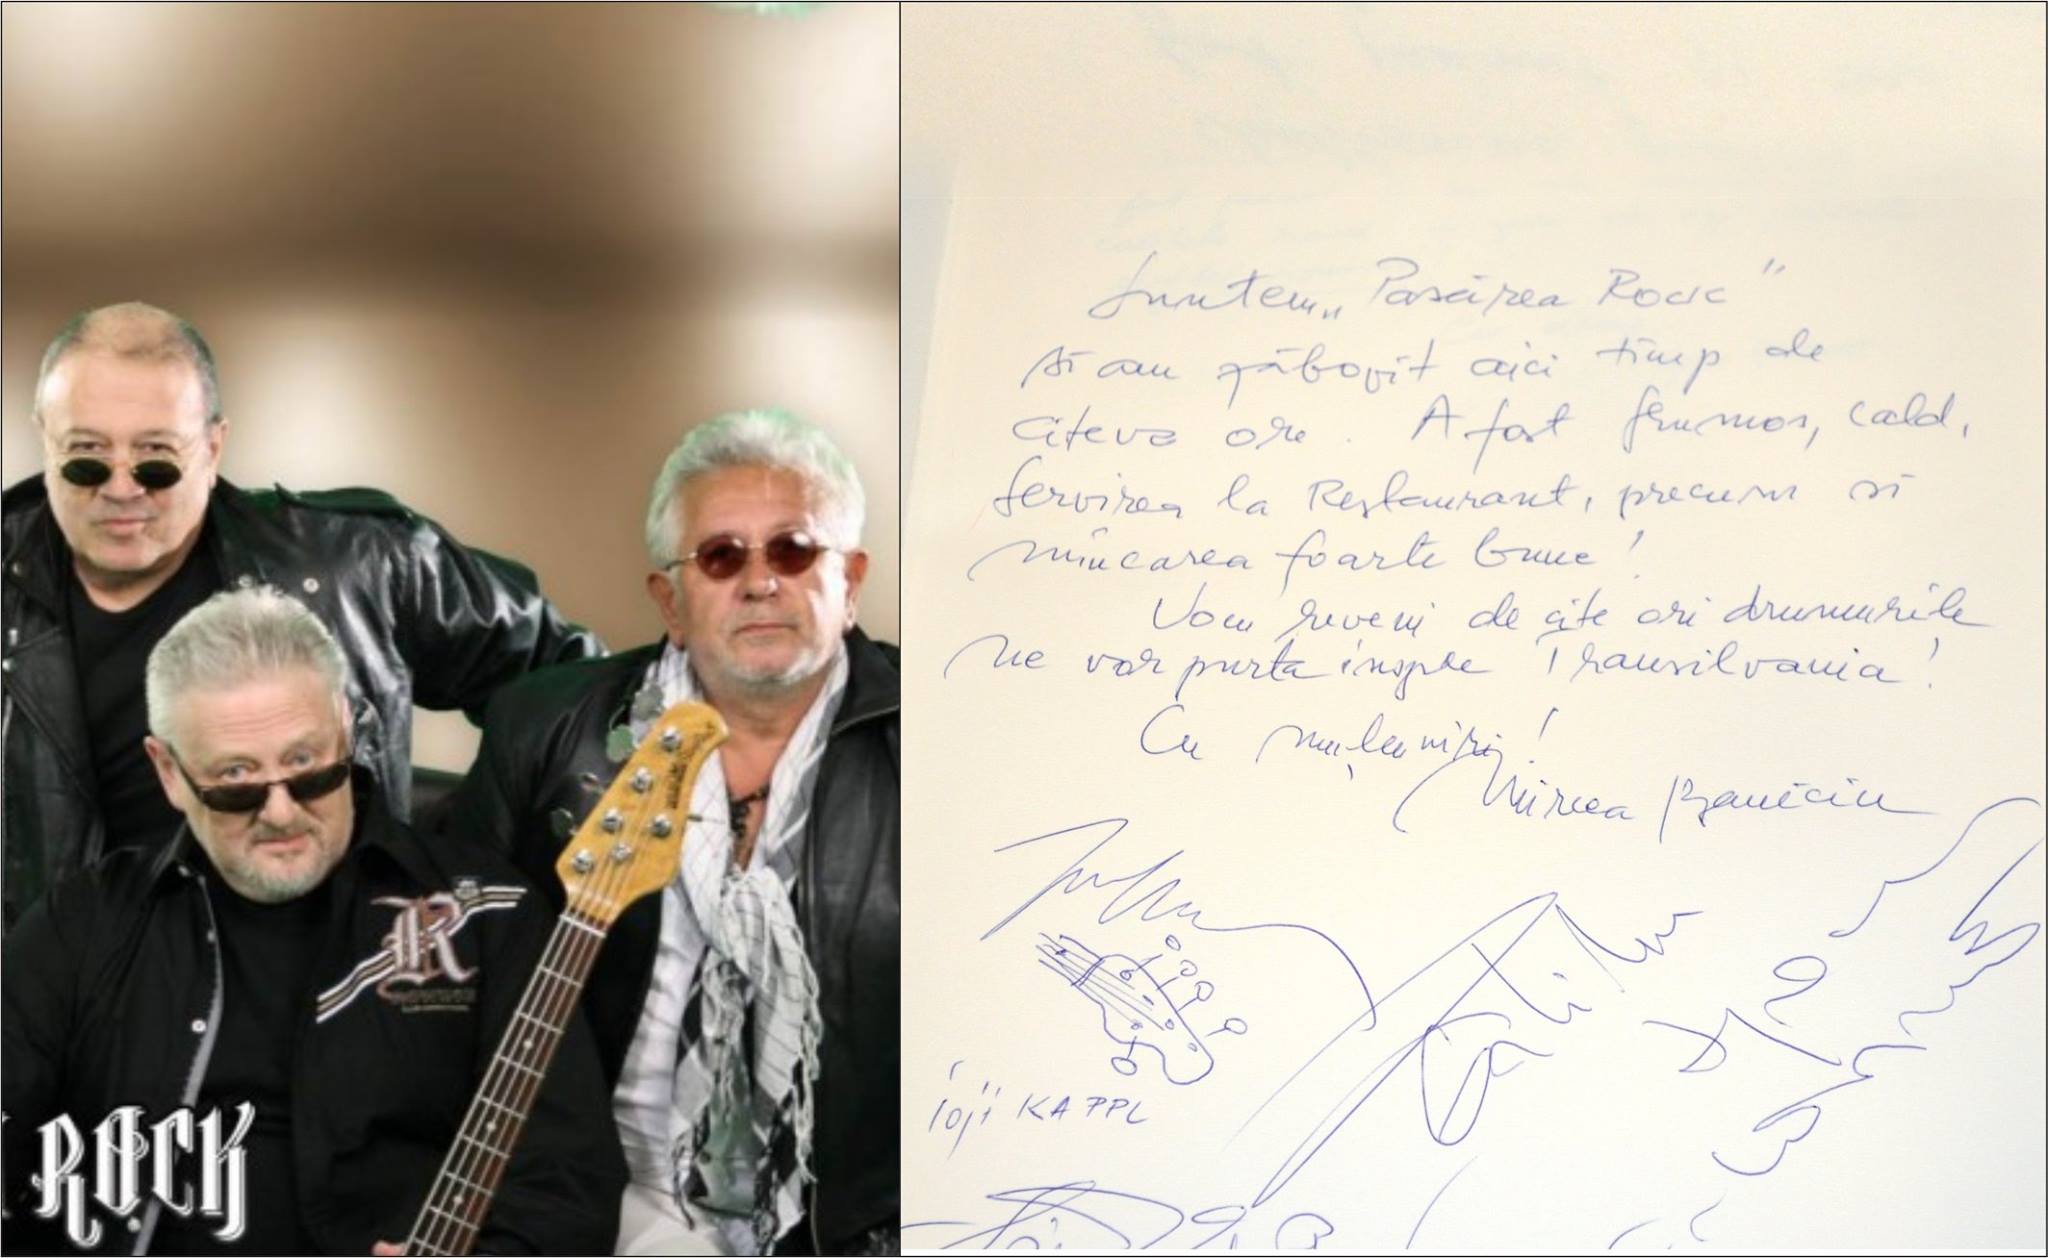 ROCK
R
Suntem „Pasărea Rock"
și am zăbovit aici timp de
cîteva ore. A fost frumos, cald,
servirea la Restaurant, precum și
mîncarea foarte bune!
Vom reveni de cîte ori drumurile
ne vor purta înspre Transilvania!
Cu mulțumiri!
Mircea Baniciu
Ioji KAPPL